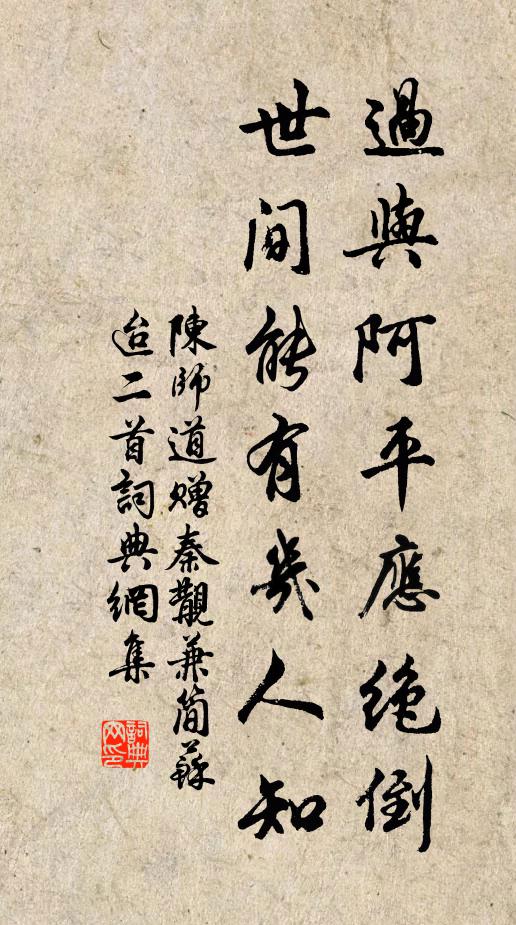 過與阿平應絶倒
世間能有幾人知
陳師道贈秦觀兼簡蘇
迨二首詞典網集
詞典